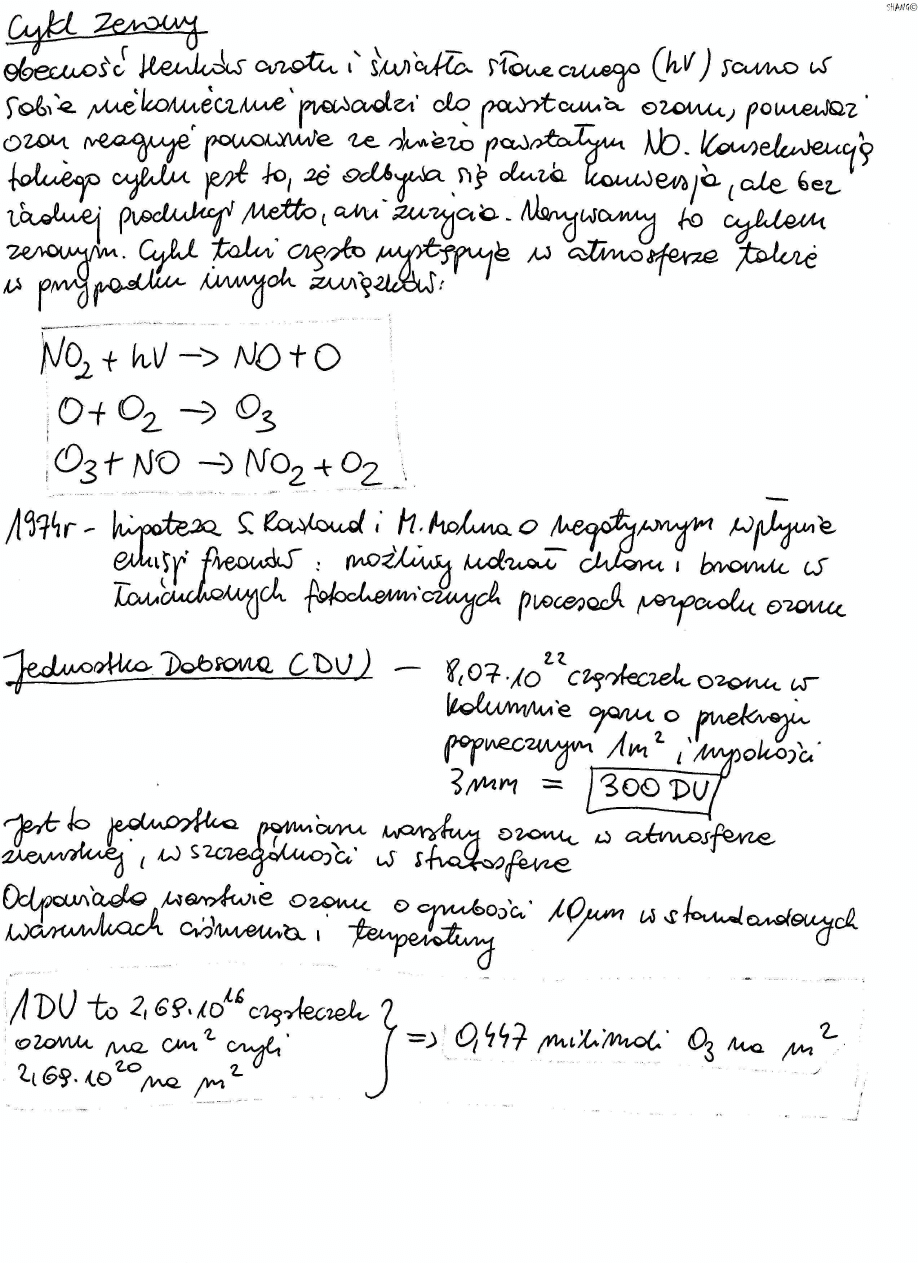 SHANG©
Cykl zerowy
obecność tlenków azotu i światła słonecznego (hV) samo w
sobie niekoniecznie prowadzi do powstania ozonu, ponieważ
ozon reaguje ponownie ze świeżo powstałym NO. Konsekwencją
takiego cyklu jest to, że odbywa się duża konwersja, ale bez
żadnej produkcji netto, ani zużycia. Nazywamy to cyklem
zerowym. Cykl taki często występuje w atmosferze także
w przypadku innych związków:
NO₂ + hV → NO + O
O + O₂ → O₃
O₃ + NO → NO₂ + O₂
1974r - hipoteza S. Rowland i M. Molina o negatywnym wpływie
emisji freonów : możliwy udział chloru i bromu w
łańcuchowych fotochemicznych procesach rozpadu ozonu
Jednostka Dobsona (DU) — 8,07·10²² cząsteczek ozonu w
kolumnie gazu o przekroju
poprzecznym 1m² i wysokości
3mm = 300 DU
Jest to jednostka pomiaru warstwy ozonu w atmosferze
ziemskiej, w szczególności w stratosferze
Odpowiada warstwie ozonu o grubości 10μm w standardowych
warunkach ciśnienia i temperatury
1DU to 2,69·10¹⁶ cząsteczek
ozonu na cm² czyli
2,69·10²⁰ na m²
} => 0,447 milimoli O₃ na m²